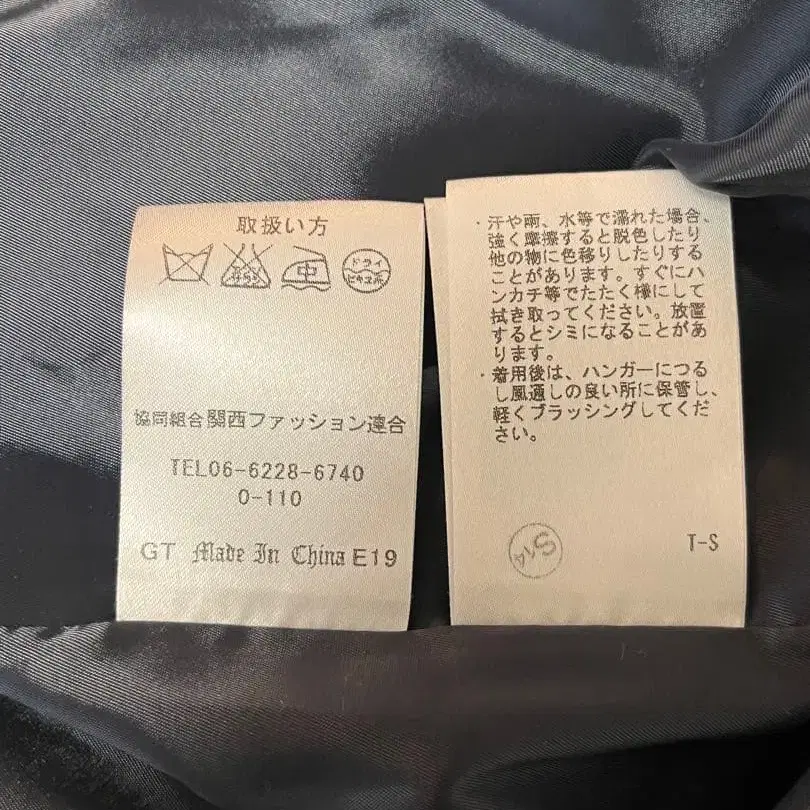 取扱い方
エンソサラシ
中
ドライ
セキユ系
協同組合関西ファッション連合
TEL06-6228-6740
0-110
GT Made In China E19
・汗や雨、水等で濡れた場合、
強く摩擦すると脱色したり
他の物に色移りしたりする
ことがあります。すぐにハ
ンカチ等でたたく様にして
拭き取ってください。放置
するとシミになることがあ
ります。
・着用後は、ハンガーにつる
し風通しの良い所に保管し、
軽くブラッシングしてくだ
さい。
S14
T-S